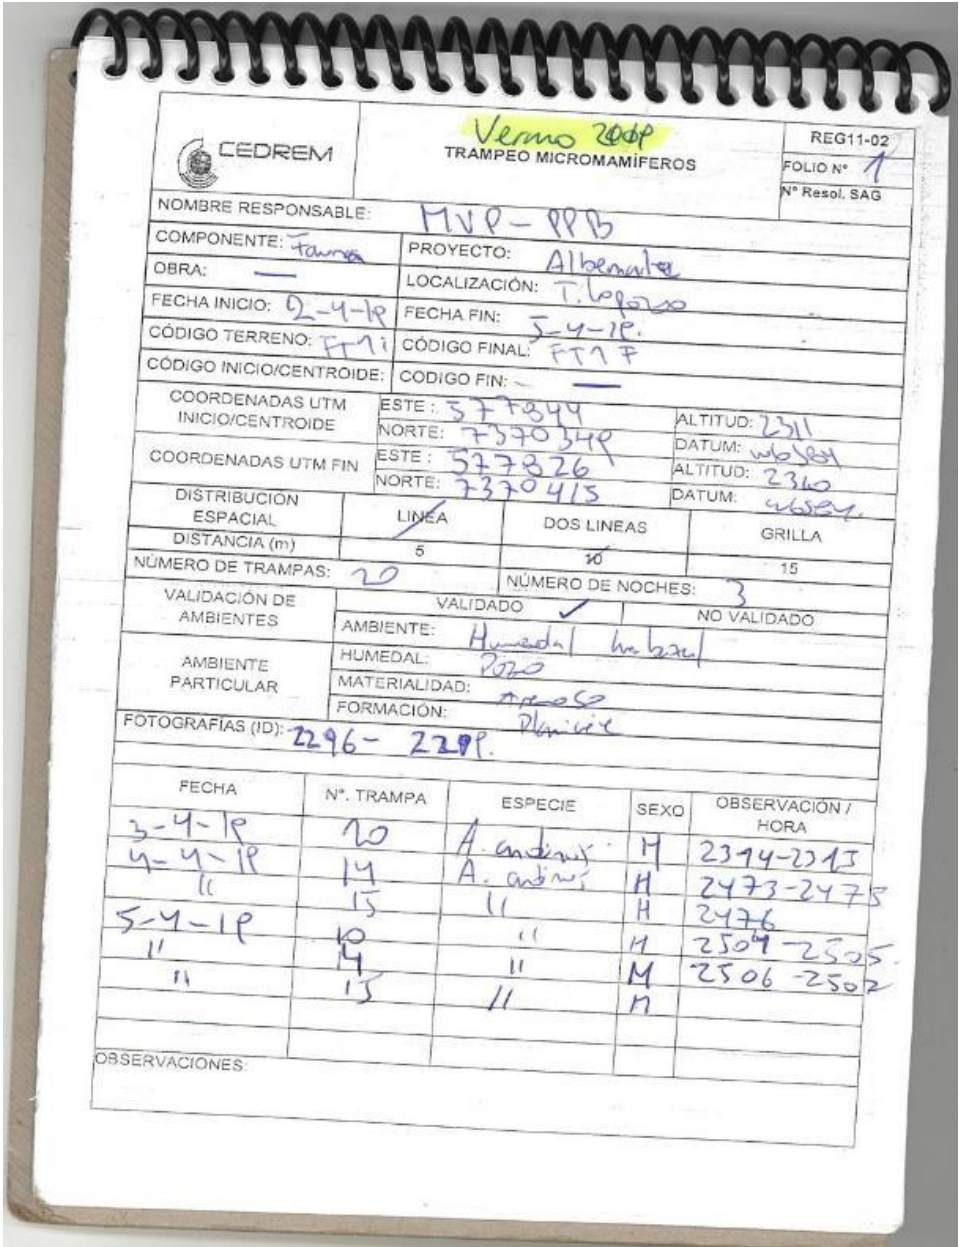 Verano
TRAMPEO MICROMAMÍFEROS
CEDREM
REG11-02
FOLIO N° 1
N° Resol. SAG
NOMBRE RESPONSABLE: MVP-PPB
COMPONENTE: Fauna PROYECTO: Albemarle
OBRA: — LOCALIZACIÓN:
FECHA INICIO: 2-4-19 FECHA FIN: 5-4-19.
CÓDIGO TERRENO: FT1i CÓDIGO FINAL: FT1F
CÓDIGO INICIO/CENTROIDE: CODIGO FIN: —
COORDENADAS UTM INICIO/CENTROIDE ESTE: 577844 ALTITUD: 2311
NORTE: 7370349 DATUM: WGS84
COORDENADAS UTM FIN ESTE: 577826 ALTITUD: 2310
NORTE: 7370415 DATUM: WGS84.
DISTRIBUCIÓN ESPACIAL LINEA DOS LINEAS GRILLA
DISTANCIA (m) 5 10 15
NÚMERO DE TRAMPAS: 20 NÚMERO DE NOCHES: 3
VALIDACIÓN DE AMBIENTES VALIDADO ✓ NO VALIDADO
AMBIENTE: Humedal
AMBIENTE PARTICULAR HUMEDAL: Pozo
MATERIALIDAD: Arenoso
FORMACIÓN: Planicie
FOTOGRAFÍAS (ID): 2296-
FECHA N°. TRAMPA ESPECIE SEXO OBSERVACIÓN / HORA
3-4-19 20 A. andinus H 2314-2315
4-4-19 14 A. andinus H 2473-2475
" 15 " H 2476
5-4-19 10 " H 2504-2505.
" 14 " M 2506-2507
" 15 " M
OBSERVACIONES: